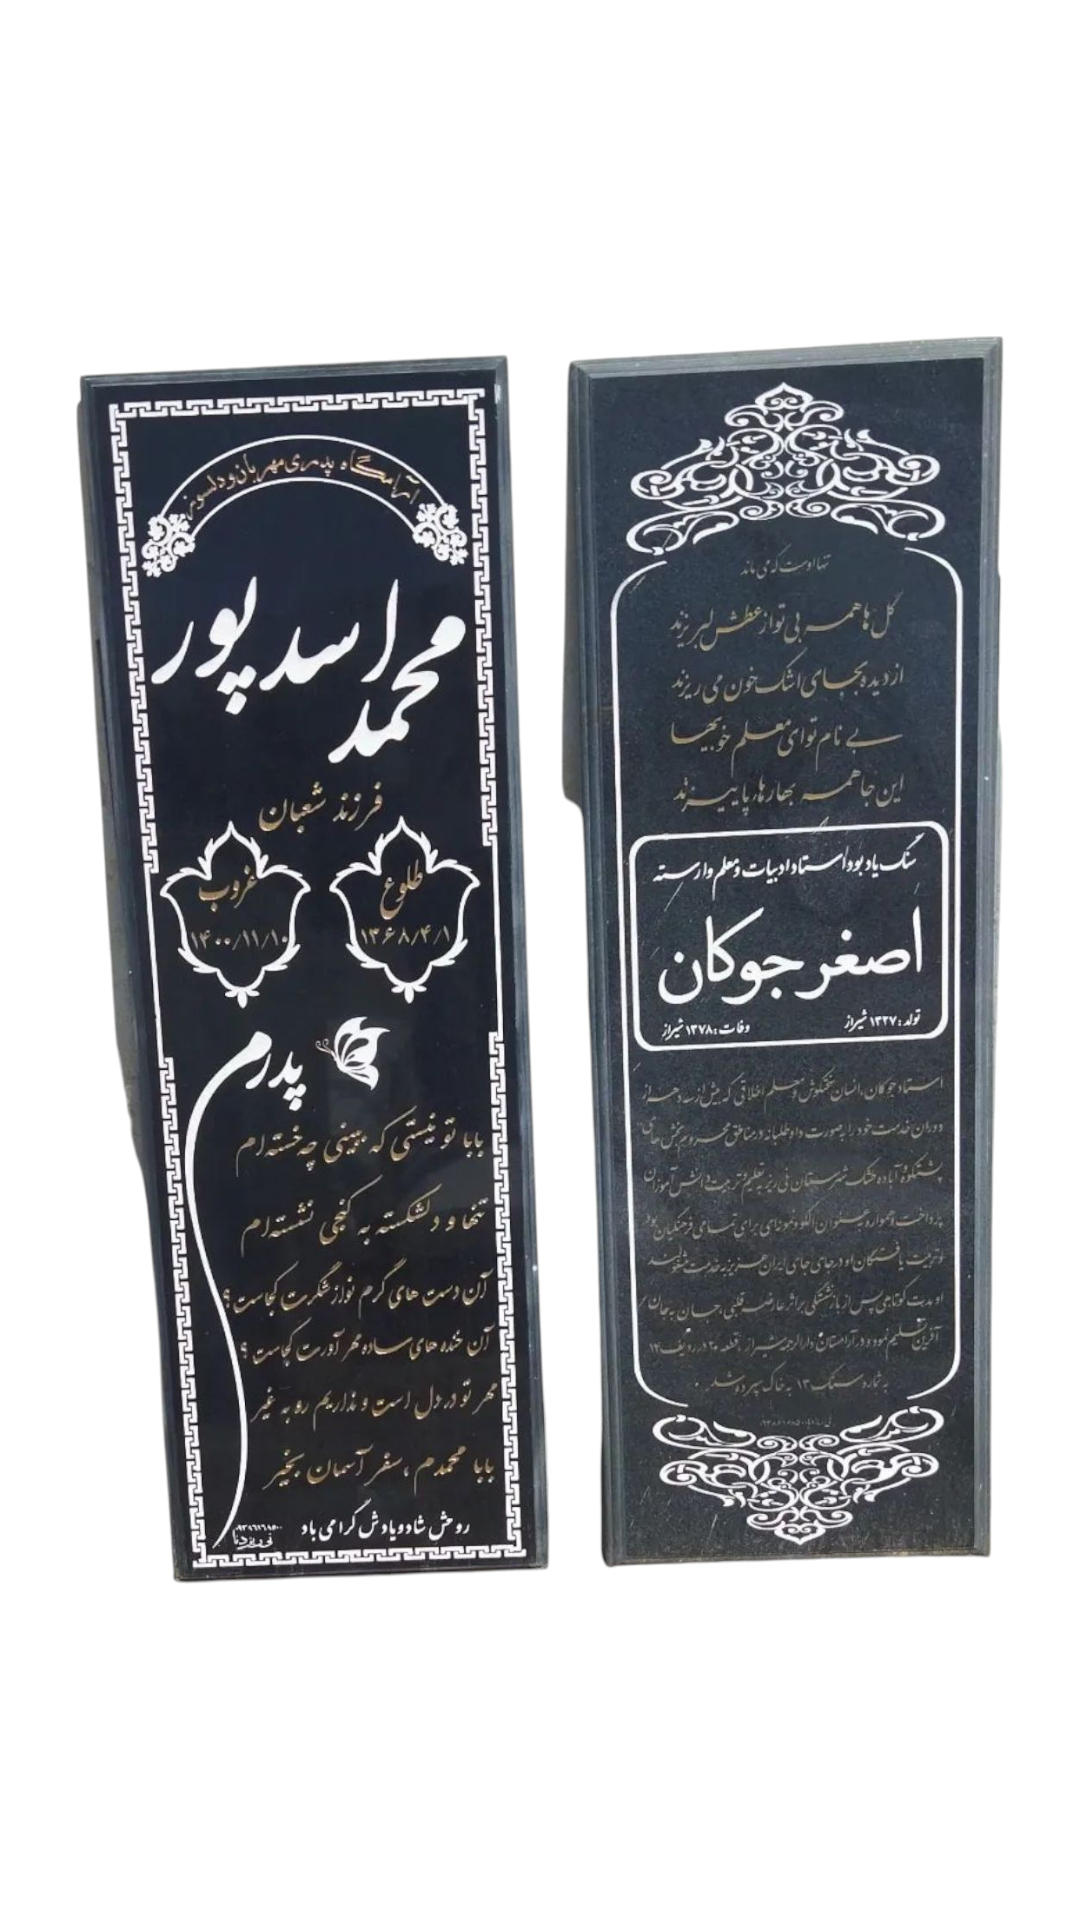 آرامگاه پدری مهربان و دلسوز
محمد اسدپور
فرزند شعبان
طلوع
۱۳۶۸/۴/۱
غروب
۱۴۰۰/۱۱/۱۰
پدرم
بابا تو نیستی که ببینی چه خسته ام
تنها و دلشکسته به کنجی نشسته ام
آن دست های گرم نوازشگرت کجاست؟
آن خنده های ساده مهر آورت کجاست؟
مهر تو در دل است و نداریم رو به غیر
بابا محمدم ، سفر آسمان بخیر
روحش شاد و یادش گرامی باد
تنها اوست که می ماند
گل ها همه بی تو از عطش لبریزند
از دیده بجای اشک خون می ریزند
بی نام تو ای معلم خوبیها
این جا همه بهارها، پاییزند
سنگ یادبود استاد ادبیات و معلم وارسته
اصغر جوکان
تولد : ۱۳۲۷ شیراز
وفات : ۱۳۷۸ شیراز
استاد جوکان، انسان سختکوش و معلم اخلاقی که بیش از سه دهه از
دوران خدمت خود را بصورت داوطلبانه در مناطق محروم بخش های
پشتکوه و آباده طشک شهرستان نی ریز به تعلیم و تربیت دانش آموزان
پرداخت و همواره بعنوان الگو و نمونه ای برای تمامی فرهنگیان بود
و تربیت یافتگان او در جای جای ایران عزیز به خدمت مشغولند
او مدت کوتاهی پس از بازنشستگی بر اثر عارضه قلبی، جان به جان
آفرین تسلیم نمود و در آرامستان دارالرحمه شیراز ، قطعه ۲۰ در ردیف ۱۲
به شماره سنگ ۱۳ به خاک سپرده شد